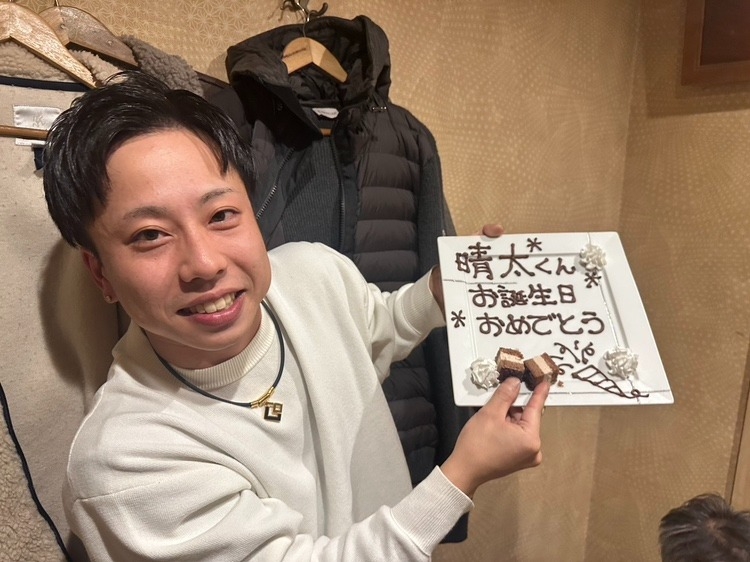 晴太くん
お誕生日
おめでとう